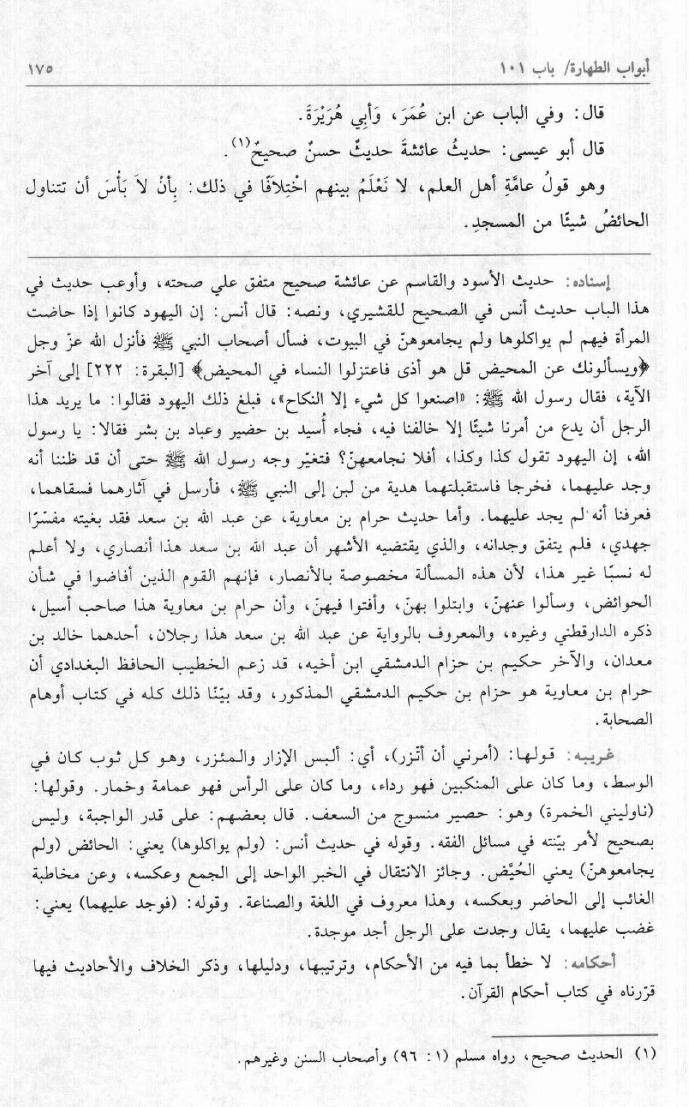 أبواب الطهارة/ باب ١٠١ ١٧٥
قال: وفي الباب عن ابن عُمَرَ، وَأبِي هُرَيْرَةَ.
قال أبو عيسى: حديثُ عائشةَ حديثٌ حسنٌ صحيحٌ(١).
وهو قولُ عامَّةِ أهل العلم، لا نَعْلَمُ بينهم اخْتِلَافًا في ذلك: بِأنْ لاَ بَأْسَ أن تتناول
الحائضُ شيئًا من المسجدِ.
إسناده: حديث الأسود والقاسم عن عائشة صحيح متفق علي صحته، وأوعب حديث في
هذا الباب حديث أنس في الصحيح للقشيري، ونصه: قال أنس: إن اليهود كانوا إذا حاضت
المرأة فيهم لم يواكلوها ولم يجامعوهنّ في البيوت، فسأل أصحاب النبي ﷺ فأنزل الله عزّ وجل
﴿ويسألونك عن المحيض قل هو أذى فاعتزلوا النساء في المحيض﴾ [البقرة: ٢٢٢] إلى آخر
الآية، فقال رسول الله ﷺ: «اصنعوا كل شيء إلا النكاح»، فبلغ ذلك اليهود فقالوا: ما يريد هذا
الرجل أن يدع من أمرنا شيئًا إلا خالفنا فيه، فجاء أُسيد بن حضير وعباد بن بشر فقالا: يا رسول
الله، إن اليهود تقول كذا وكذا، أفلا نجامعهنّ؟ فتغيّر وجه رسول الله ﷺ حتى أن قد ظننا أنه
وجد عليهما، فخرجا فاستقبلتهما هدية من لبن إلى النبي ﷺ، فأرسل في آثارهما فسقاهما،
فعرفنا أنه لم يجد عليهما. وأما حديث حرام بن معاوية، عن عبد الله بن سعد فقد بغيته مفسّرًا
جهدي، فلم يتفق وجدانه، والذي يقتضيه الأشهر أن عبد الله بن سعد هذا أنصاري، ولا أعلم
له نسبًا غير هذا، لأن هذه المسألة مخصوصة بالأنصار، فإنهم القوم الذين أفاضوا في شأن
الحوائض، وسألوا عنهنّ، وابتلوا بهنّ، وأفتوا فيهنّ، وأن حرام بن معاوية هذا صاحب أسيل،
ذكره الدارقطني وغيره، والمعروف بالرواية عن عبد الله بن سعد هذا رجلان، أحدهما خالد بن
معدان، والآخر حكيم بن حزام الدمشقي ابن أخيه، قد زعم الخطيب الحافظ البغدادي أن
حرام بن معاوية هو حزام بن حكيم الدمشقي المذكور، وقد بيّنّا ذلك كله في كتاب أوهام
الصحابة.
غريبه: قولها: (أمرني أن أتّزر)، أي: ألبس الإزار والمئزر، وهو كل ثوب كان في
الوسط، وما كان على المنكبين فهو رداء، وما كان على الرأس فهو عمامة وخمار. وقولها:
(ناوليني الخمرة) وهو: حصير منسوج من السعف. قال بعضهم: على قدر الواجبة، وليس
بصحيح لأمر بيّنته في مسائل الفقه. وقوله في حديث أنس: (ولم يواكلوها) يعني: الحائض (ولم
يجامعوهنّ) يعني الحُيَّض. وجائز الانتقال في الخبر الواحد إلى الجمع وعكسه، وعن مخاطبة
الغائب إلى الحاضر وبعكسه، وهذا معروف في اللغة والصناعة. وقوله: (فوجد عليهما) يعني:
غضب عليهما، يقال وجدت على الرجل أجد موجدة.
أحكامه: لا خطأ بما فيه من الأحكام، وترتيبها، ودليلها، وذكر الخلاف والأحاديث فيها
قرّرناه في كتاب أحكام القرآن.
(١) الحديث صحيح، رواه مسلم (١: ٩٦) وأصحاب السنن وغيرهم.